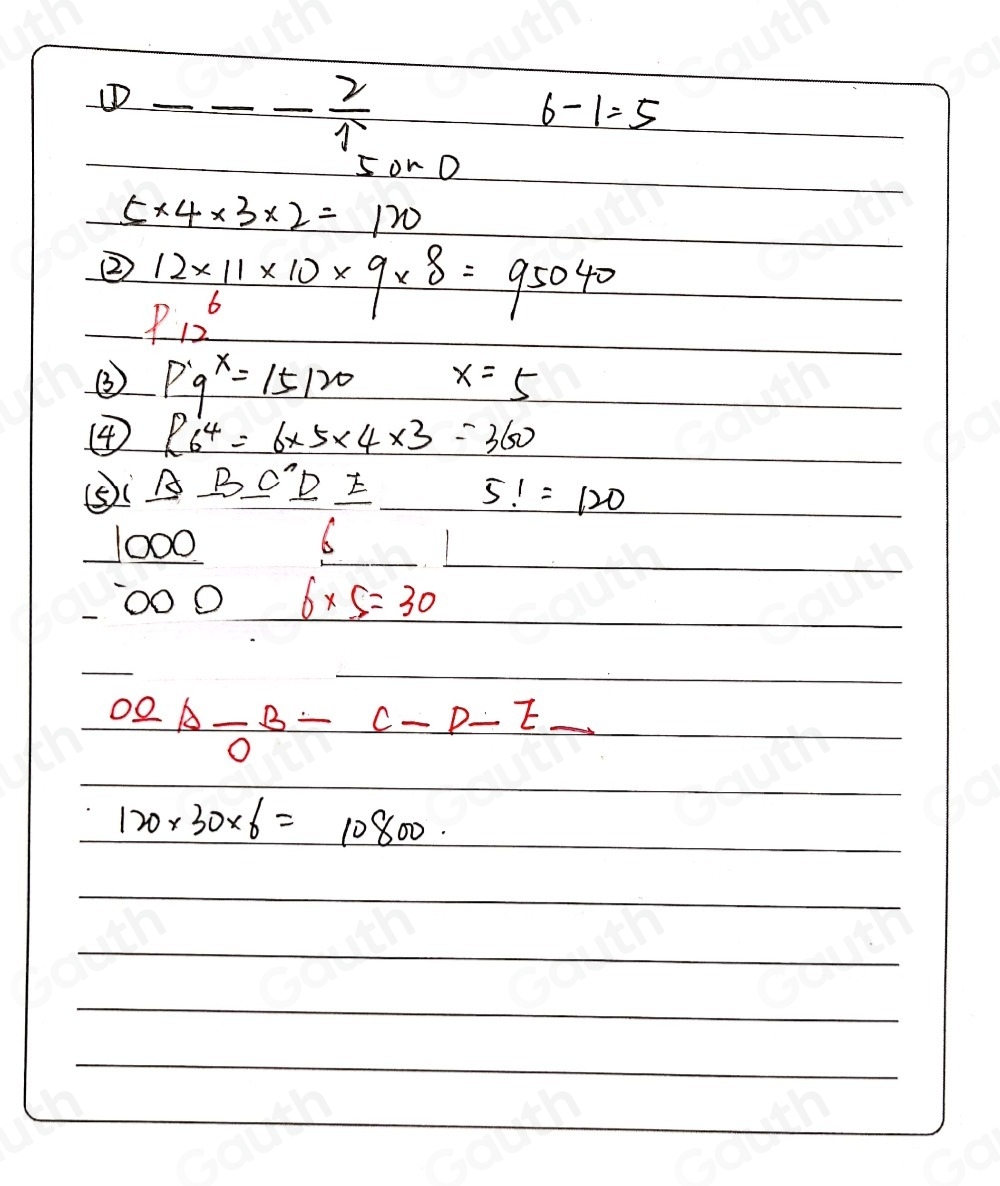 ① _ _ _ 2 6-1=5
↑ 5 or 0
5×4×3×2= 120
② 12×11×10×9×8= 95040
P12^6
③ P9^x=15120 x=5
④ P6^4= 6×5×4×3=360
⑤ A B C D E 5!=120
1000 6
000 6×5=30
00 A _ B _ C _ D _ E _
0
120×30×6= 10800.
Gauth